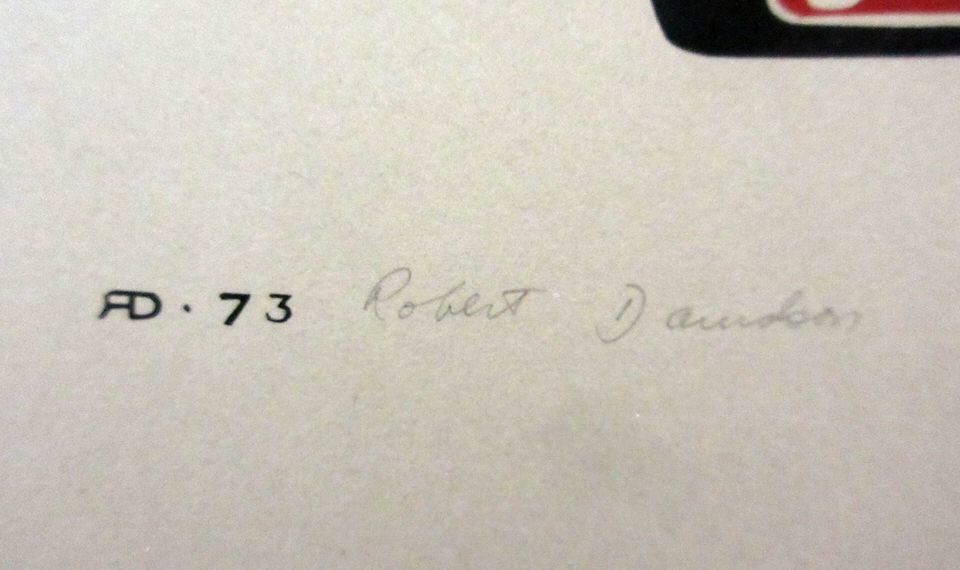 RD · 73 Robert Davidson